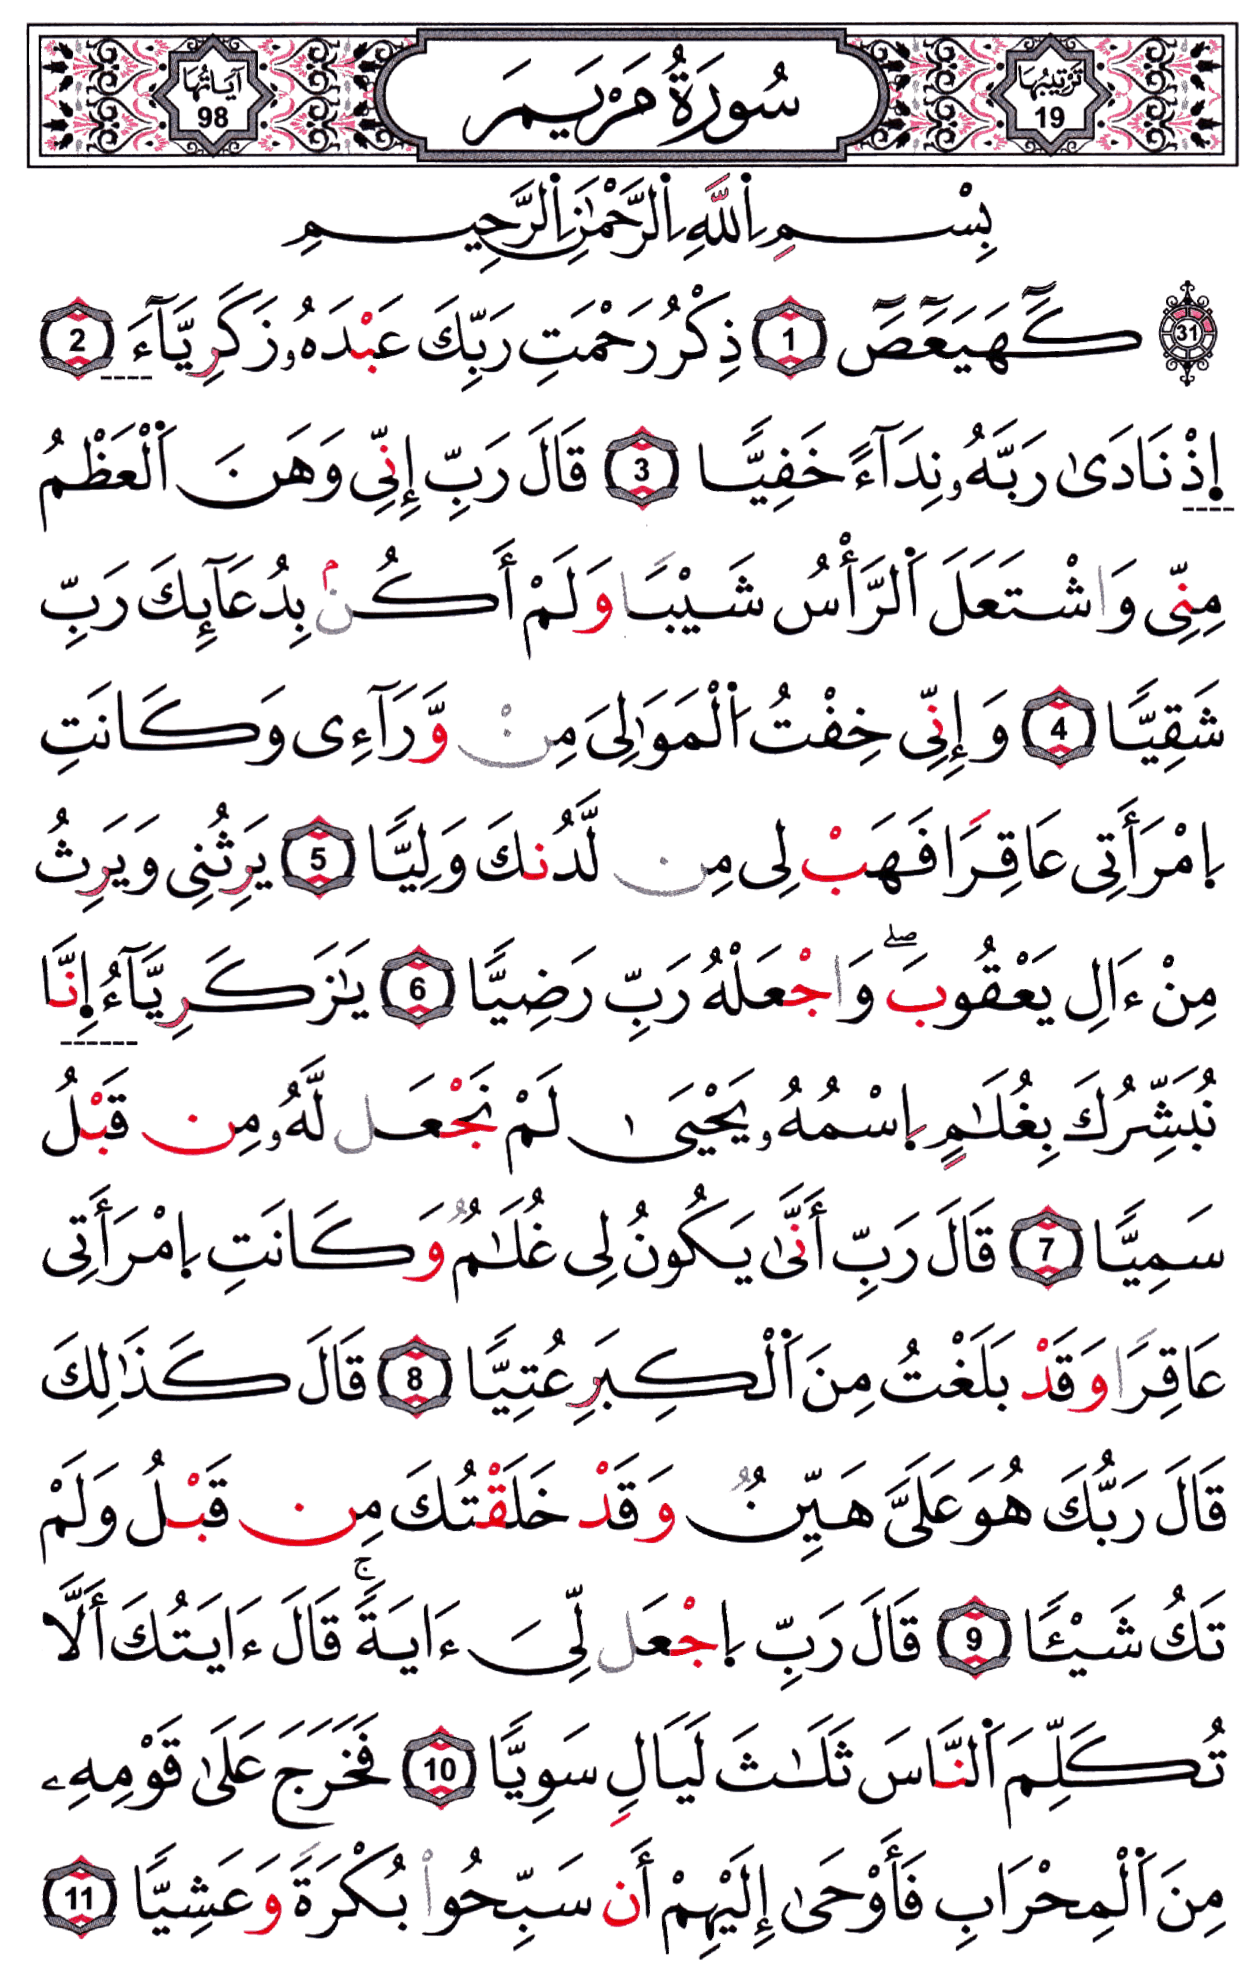 تَرْتِيبُهَا 19 سُورَةُ مَرْيَمَ آيَاتُهَا 98
بِسْمِ اِ۬للَّهِ اِ۬لرَّحْمَٰنِ اِ۬لرَّحِيمِ
31 كَٓهَيَعَٓصَٓ 1 ذِكْرُ رَحْمَتِ رَبِّكَ عَبْدَهُۥ زَكَرِيَّآءَ 2
اِ۪ذْ نَادَىٰ رَبَّهُۥ نِدَآءً خَفِيًّا 3 قَالَ رَبِّ إِنِّي وَهَنَ اَ۬لْعَظْمُ
مِنِّي وَاشْتَعَلَ اَ۬لرَّأْسُ شَيْبًا وَلَمْ أَكُنۢ بِدُعَآئِكَ رَبِّ
شَقِيًّا 4 وَإِنِّي خِفْتُ اُ۬لْمَوَٰلِيَ مِنْ وَّرَآءِي وَكَانَتِ
اِمْرَأَتِي عَاقِرًا فَهَبْ لِي مِن لَّدُنكَ وَلِيًّا 5 يَرِثْنِي وَيَرِثْ
مِنْ ءَالِ يَعْقُوبَۖ وَاجْعَلْهُ رَبِّ رَضِيًّا 6 يَٰزَكَرِيَّآءُ اِ۪نَّا
نُبَشِّرُكَ بِغُلَٰمٍ اِسْمُهُۥ يَحْيَىٰ لَمْ نَجْعَل لَّهُۥ مِن قَبْلُ
سَمِيًّا 7 قَالَ رَبِّ أَنَّىٰ يَكُونُ لِي غُلَٰمٌ وَكَانَتِ اِمْرَأَتِي
عَاقِرًا وَقَدْ بَلَغْتُ مِنَ اَ۬لْكِبَرِ عُتِيًّا 8 قَالَ كَذَٰلِكَ
قَالَ رَبُّكَ هُوَ عَلَيَّ هَيِّنٌ وَقَدْ خَلَقْتُكَ مِن قَبْلُ وَلَمْ
تَكُ شَيْـًٔا 9 قَالَ رَبِّ اِجْعَل لِّيَ ءَايَةًۚ قَالَ ءَايَتُكَ أَلَّا
تُكَلِّمَ اَ۬لنَّاسَ ثَلَٰثَ لَيَالٍ سَوِيًّا 10 فَخَرَجَ عَلَىٰ قَوْمِهِۦ
مِنَ اَ۬لْمِحْرَابِ فَأَوْحَىٰ إِلَيْهِمْ أَن سَبِّحُوا۟ بُكْرَةً وَعَشِيًّا 11